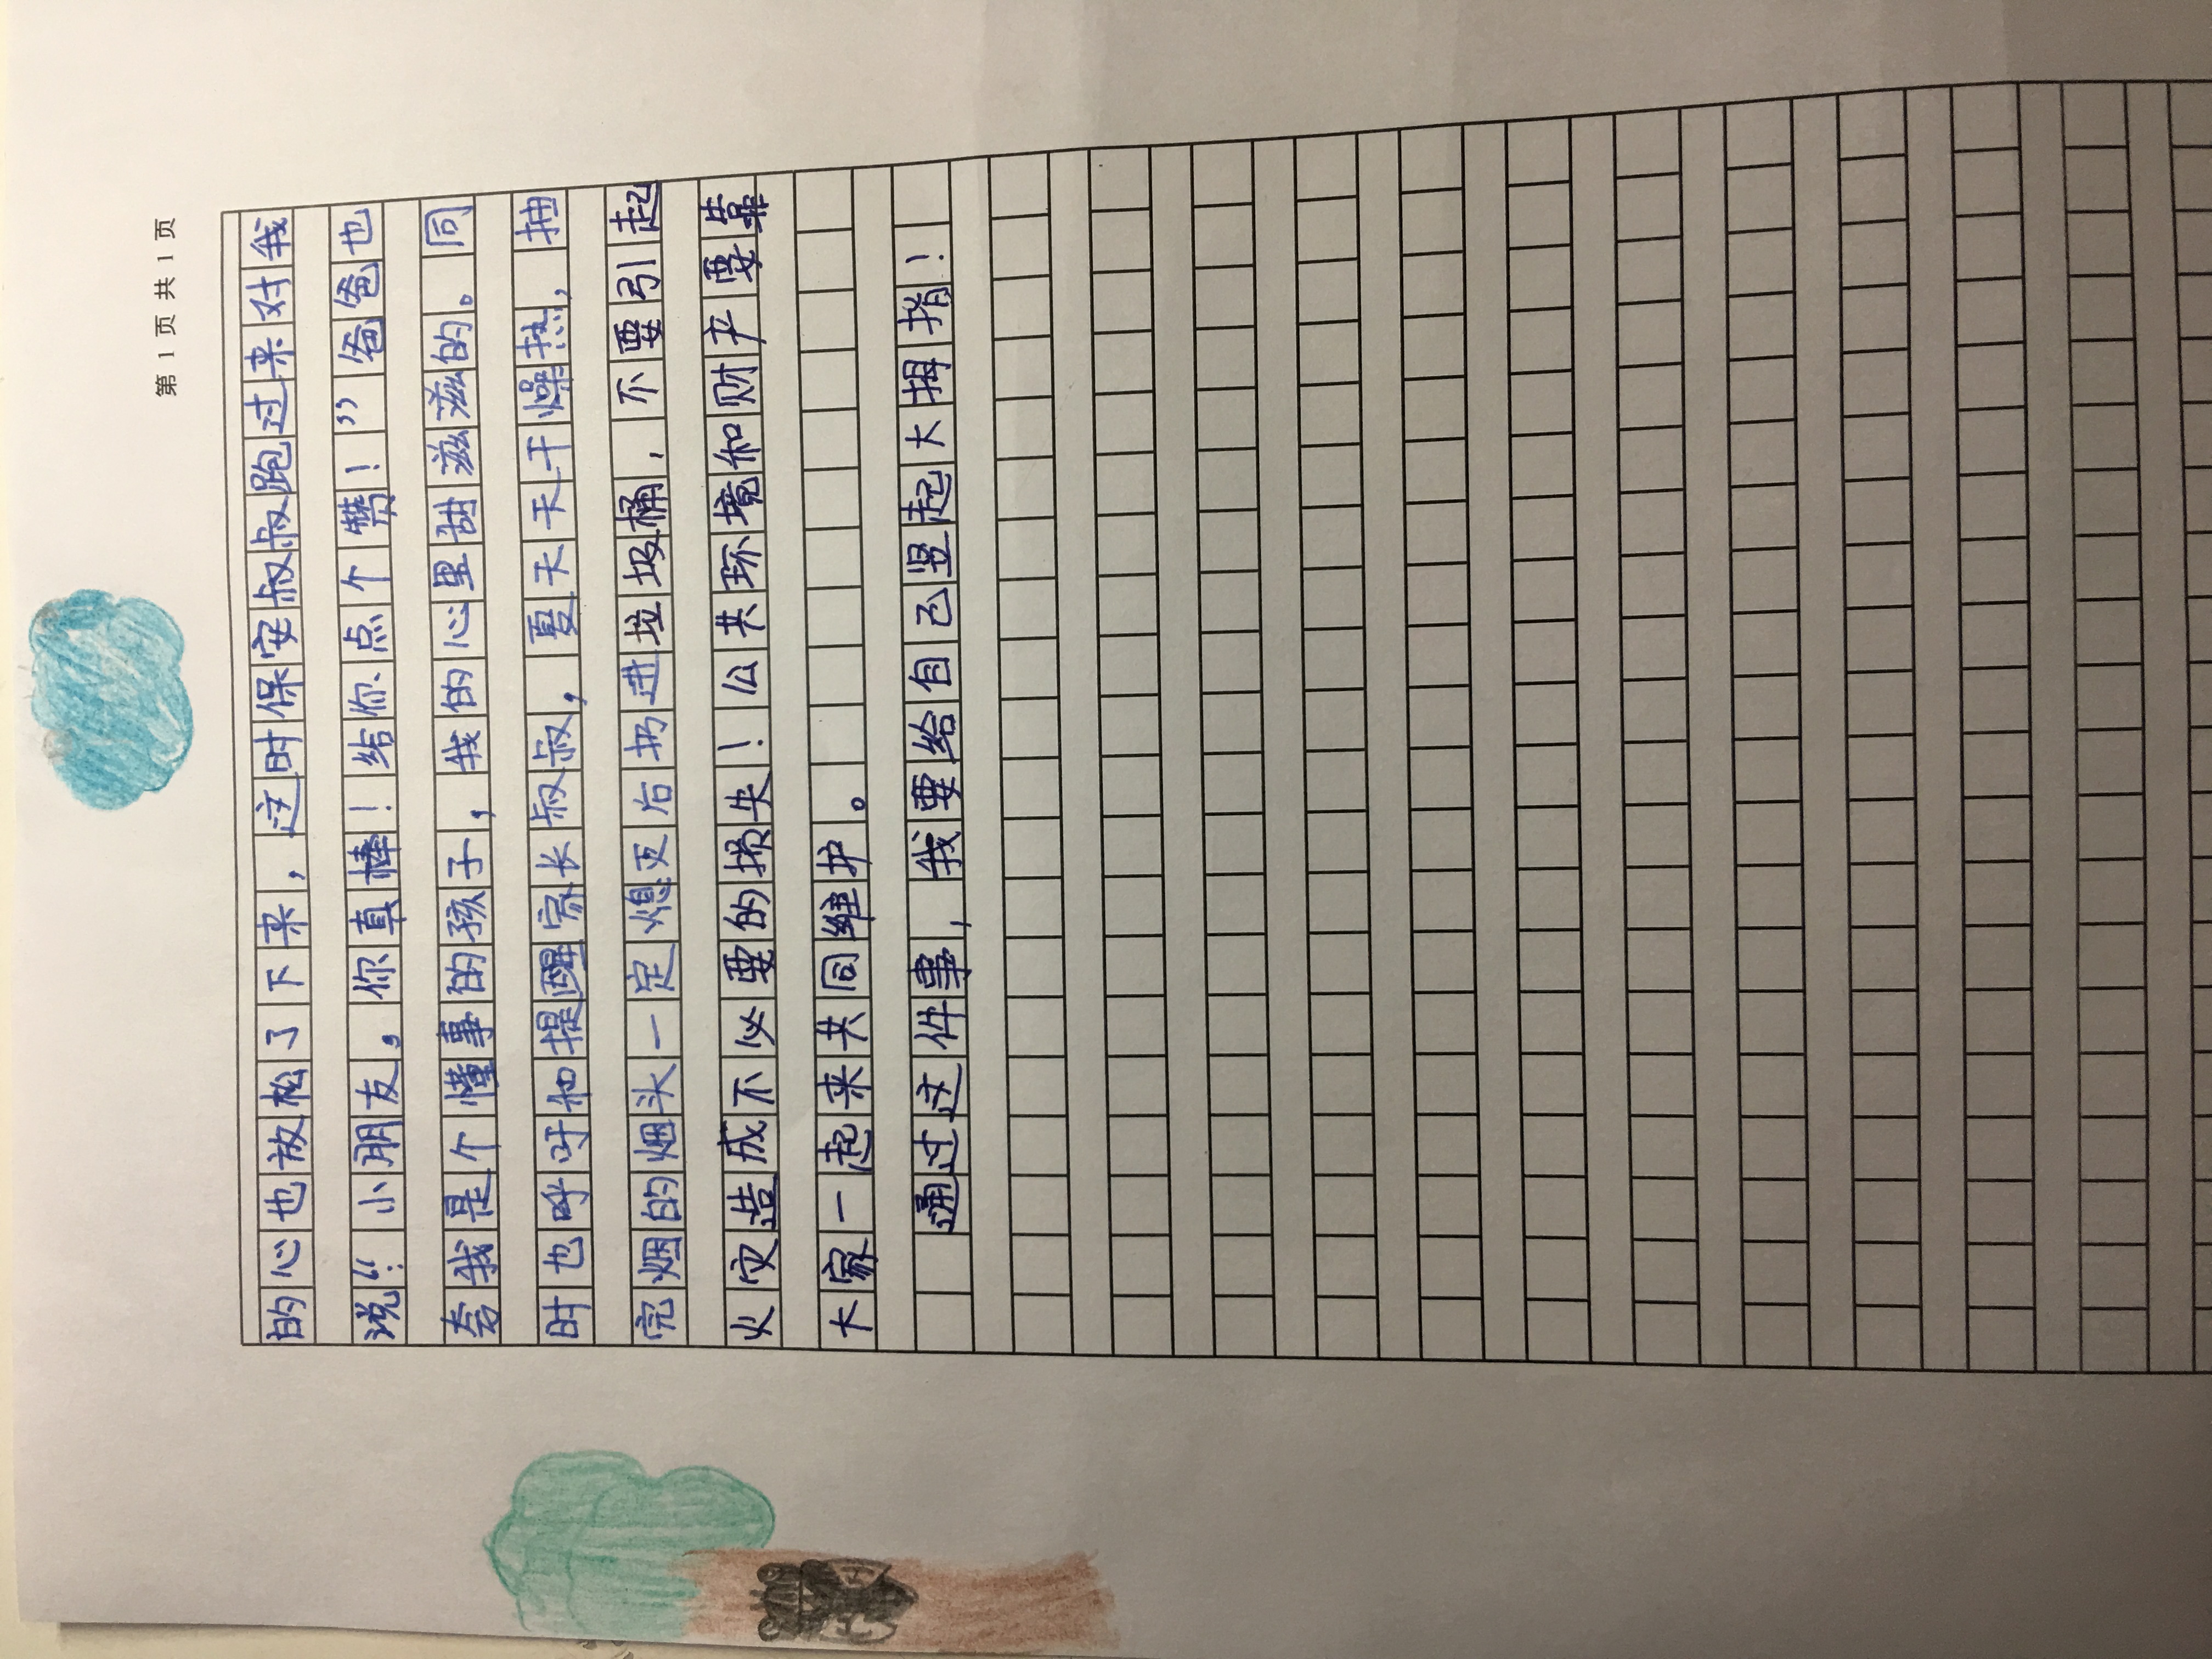 第 1 页 共 1 页
的心也放松了下来，这时保安叔叔跑过来对我
说：“小朋友，你真棒！给你点个赞！”爸爸也
夸我是个懂事的孩子，我的心里甜滋滋的。同
时也呼吁和提醒家长叔叔，夏天天干燥热，抽
完烟的烟头一定熄灭后扔进垃圾桶，不要引起
火灾造成不必要的损失！公共环境和财产要靠
大家一起来共同维护。
通过这件事，我要给自己竖起大拇指！